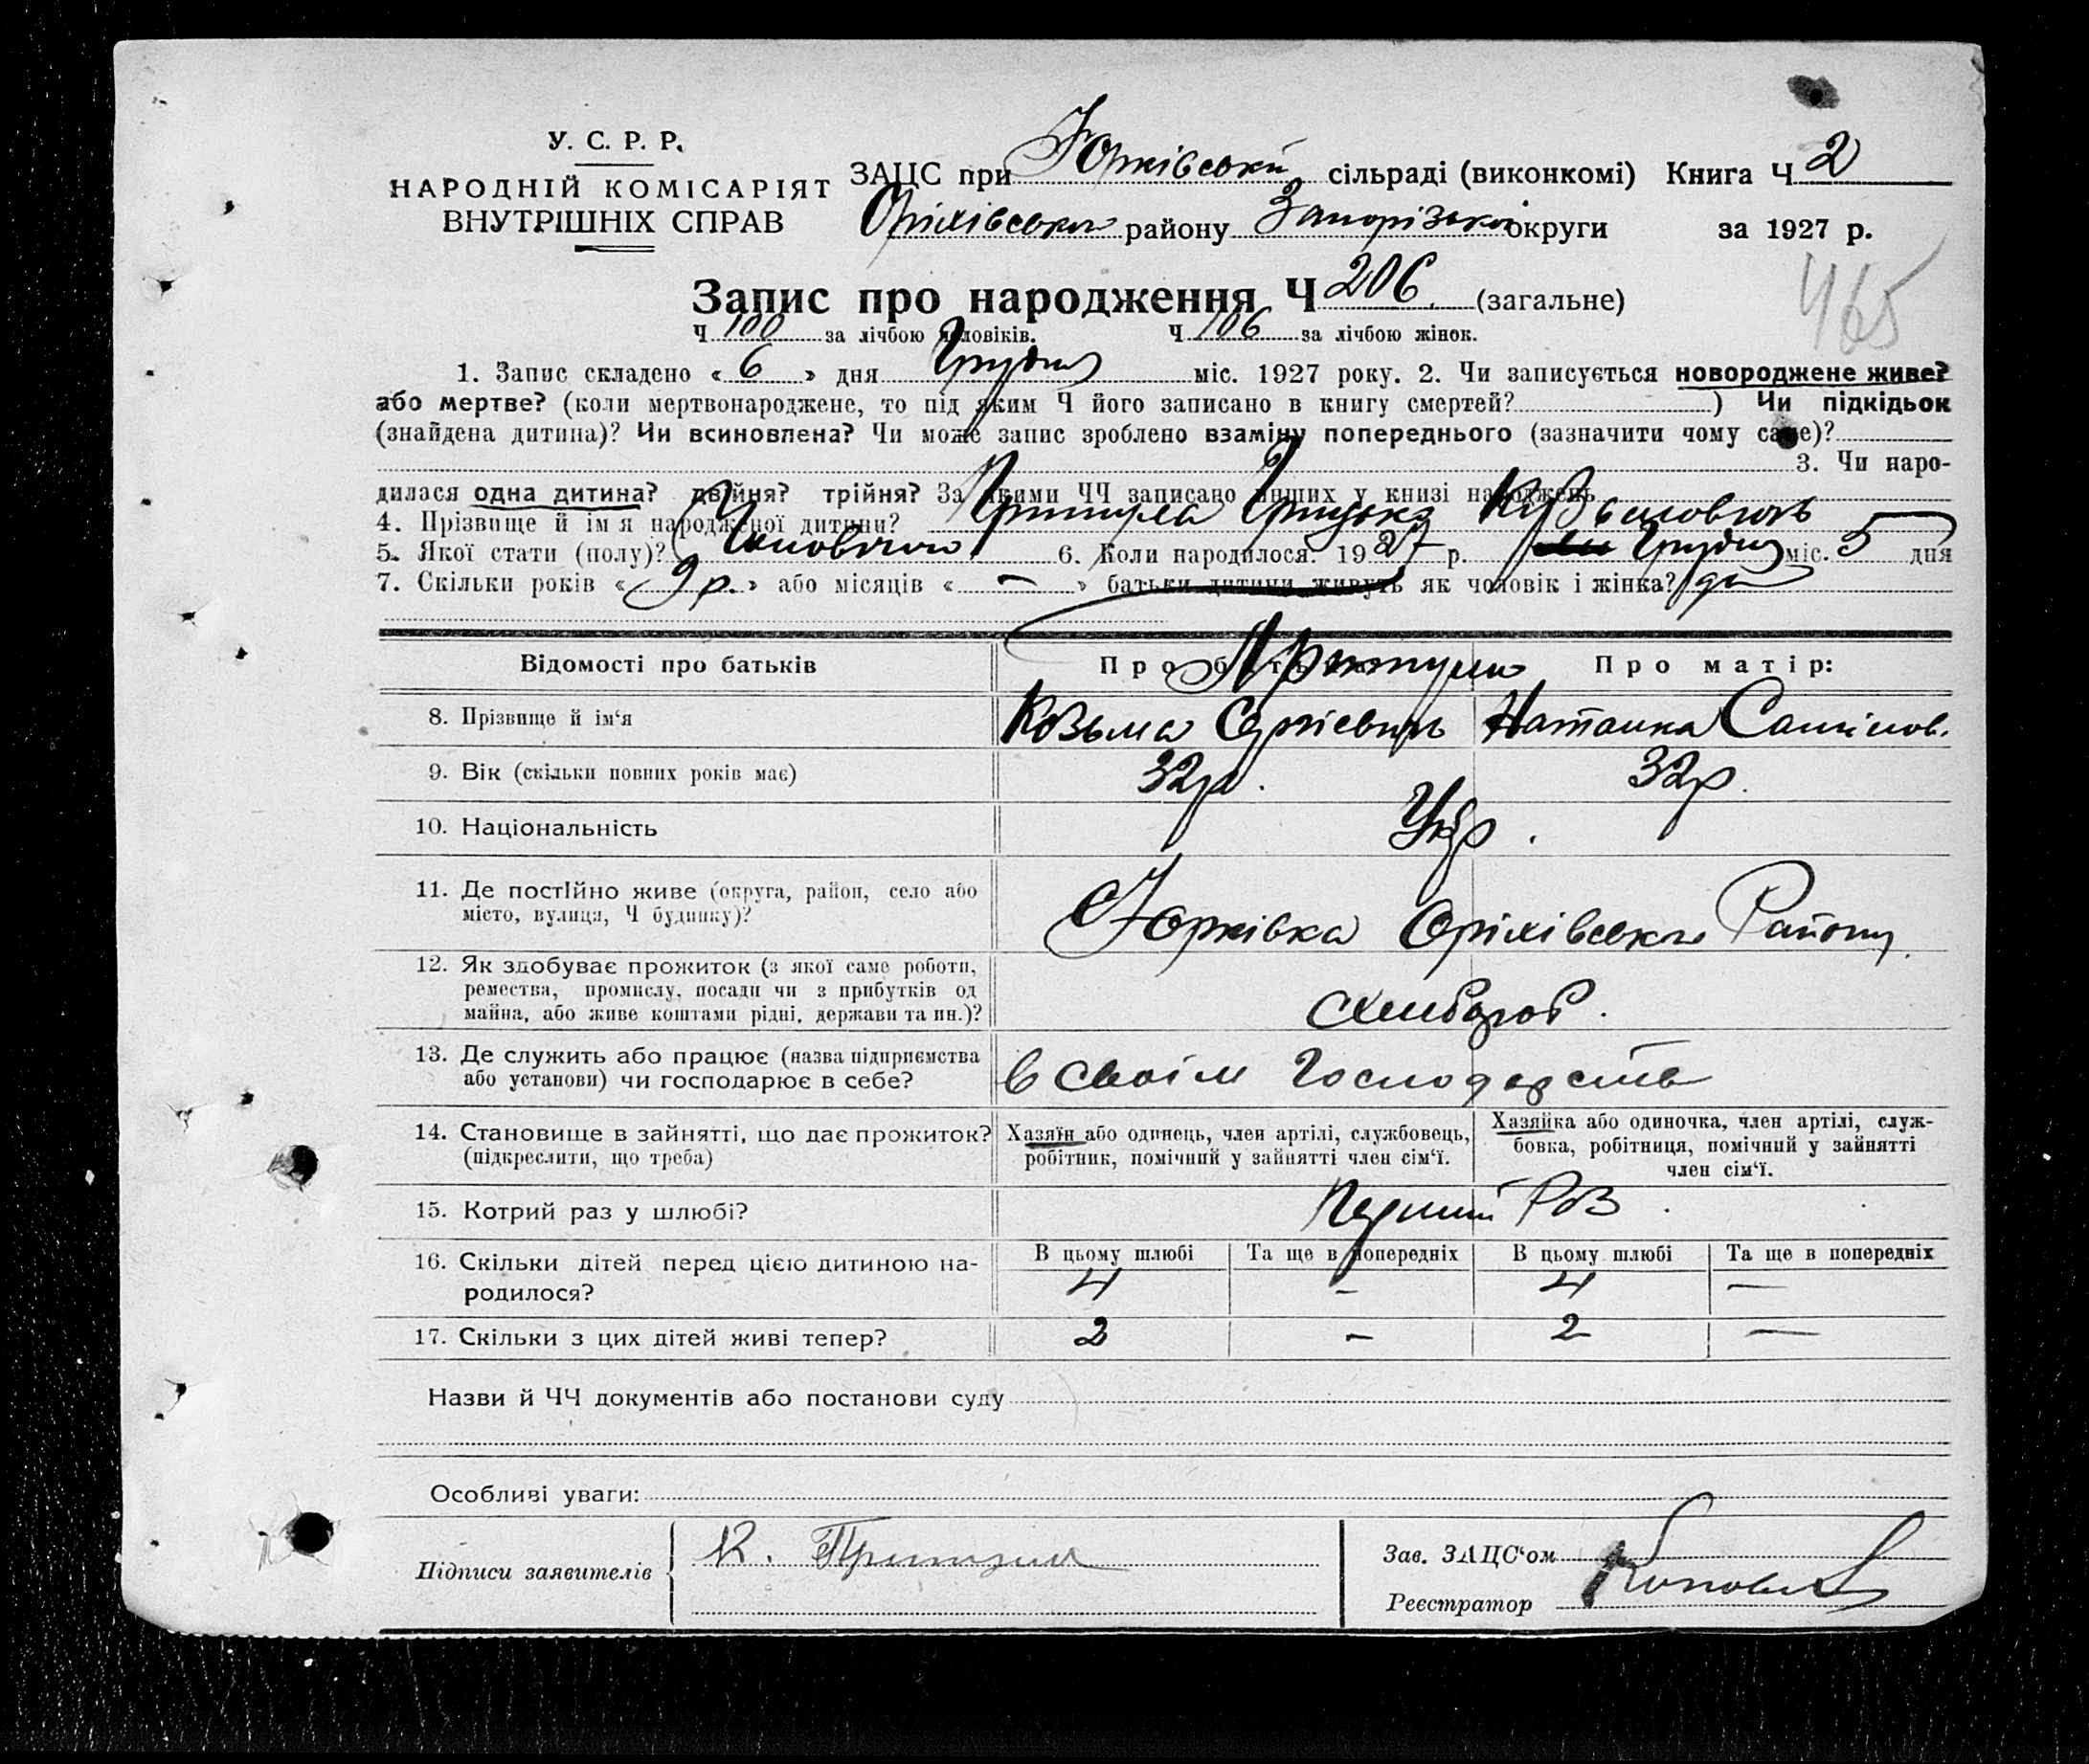 У. С. Р. Р.
НАРОДНІЙ КОМІСАРІЯТ
ВНУТРІШНІХ СПРАВ
ЗАЦС при Юрківській сільраді (виконкомі) Книга Ч 2
Оріхівського району Запорізької округи за 1927 р.
465
Запис про народження Ч 206. (загальне)
Ч 100 за лічбою чоловіків. Ч 106 за лічбою жінок.
1. Запис складено « 6 » дня Грудня міс. 1927 року. 2. Чи записується новороджене живе?
або мертве? (коли мертвонароджене, то під яким Ч його записано в книгу смертей? ) Чи підкідьок
(знайдена дитина)? Чи всиновлена? Чи може запис зроблено взаміну попереднього (зазначити чому саме)?
3. Чи наро-
дилася одна дитина? двійня? трійня? За якими ЧЧ записано инших у книзі народжень
4. Прізвище й ім'я народженої дитини? Притула Грицько Козьмович
5. Якої стати (полу)? Чоловічої 6. Коли народилося: 1927 р. Грудня міс. 5 дня
7. Скільки років « 9 р. » або місяців « — » батьки дитини живуть як чоловік і жінка? да
Відомості про батьків Про батька Про матір:
Притули
8. Прізвище й ім‘я Козьма Сергієвич Наталка Самійлов.
9. Вік (скільки повних років має) 32р. 32р.
10. Національність Укр.
11. Де постІйно живе (округа, район, село або
місто, вулиця, Ч будинку)? Юрківка Оріхівського Району.
12. Як здобуває прожиток (з якої саме роботи,
ремества, промислу, посади чи з прибутків од
майна, або живе коштами рідні, держави та ин.)? хлибороб.
13. Де служить або працює (назва підприємства
або установи) чи господарює в себе? в своїм Господарстві
14. Становище в зайнятті, що дає прожиток?
(підкреслити, що треба)
Хазяїн або одинець, член артілі, службовець,
робітник, помічний у зайнятті член сім‘ї.
Хазяйка або одиночка, член артілі, служ-
бовка, робітниця, помічний у зайнятті
член сім‘ї.
15. Котрий раз у шлюбі? Перший Роз.
16. Скільки дітей перед цією дитиною на-
родилося?
В цьому шлюбі Та ще в попередніх В цьому шлюбі Та ще в попередніх
4 - 4 —
17. Скільки з цих дітей живі тепер? 2 - 2 —
Назви й ЧЧ документів або постанови суду
Особливі уваги:
Підписи заявителів К. Притула
Зав. ЗАЦС‘ом
Реєстратор